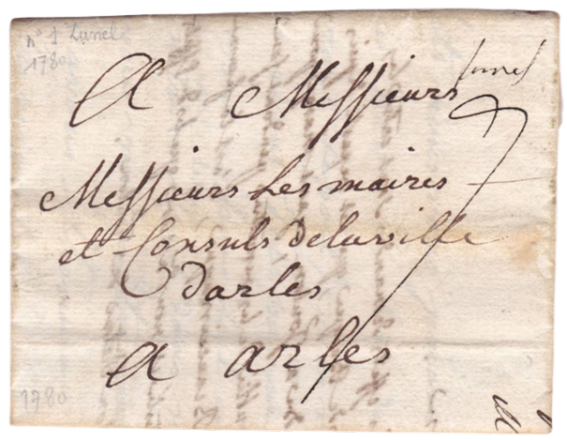 n° 1 Lunel
1780
lunel
A Messieurs
Messieurs Les maires
et Consuls delaville
darles
A arles
1780